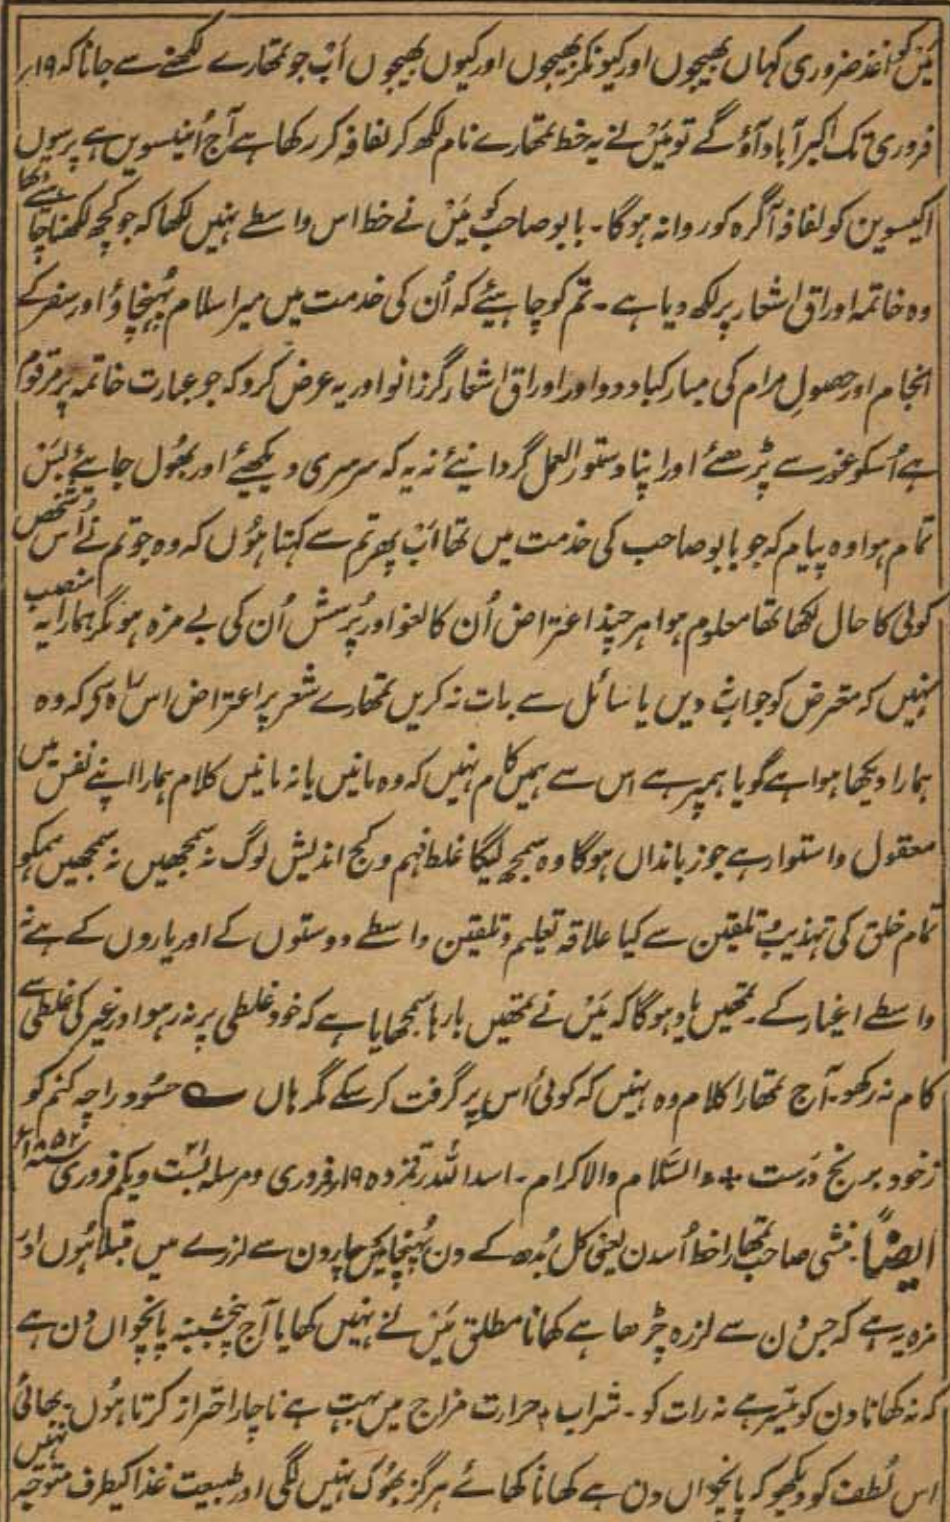 میں کاغذ ضروری کہاں بھیجوں اور کیونکر بھیجوں اور کیوں بھیجوں اب جو تمھارے لکھنے سے جانا کہ ۱۹؍
فروری تک اکبر آباد آؤ گے تو میں نے یہ خط تمھارے نام لکھ کر لفافہ کر رکھا ہے آج اُنیسویں ہے پرسوں
اکیسوین کو لفافہ آگرہ کو روانہ ہوگا۔ بابو صاحب کو میں نے خط اس واسطے نہیں لکھا کہ جو کچھ لکھنا چاہیے تھا
وہ خاتمہ اوراق اشعار پر لکھ دیا ہے۔ تم کو چاہیئے کہ اُن کی خدمت میں میرا سلام پہنچاؤ اور سفر کے
انجام اور حصول مرام کی مبارکباد دو اور اوراق اشعار گزرانو اور یہ عرض کرو کہ جو عبارت خاتمہ پر مرقوم
ہے اُسکو غور سے پڑھئے اور اپنا دستور العمل گردانیئے نہ یہ کہ سرسری دیکھیئے اور بھُول جائیے بس
تمام ہوا وہ پیام کہ جو بابو صاحب کی خدمت میں تھا اب پھر تم سے کہتا ہُوں کہ وہ جو تم نے اُس شخص
کوئی کا حال لکھا تھا معلوم ہوا ہر چند اعتراض اُن کا لغو اور پُرسش اُن کی بے مزہ ہو مگر ہمارا یہ منصب
نہیں کہ معترض کو جواب دیں یا سائل سے بات نہ کریں تمھارے شعر پر اعتراض اس راہ سے کہ وہ
ہمارا دیکھا ہوا ہے گویا ہمپر ہے اس سے ہمیں کام نہیں کہ وہ مانیں یا نہ مانیں کلام ہمارا اپنے نفس میں
معقول و استوار ہے جو زباندان ہوگا وہ سمجھ لیگا غلط فہم و کج اندیش لوگ نہ سمجھیں نہ سمجھیں ہمکو
تمام خلق کی تہذیب و تلقین سے کیا علاقہ تعلیم و تلقین واسطے دوستوں کے اور یاروں کے ہے نہ
واسطے اغیار کے۔ تمھیں یاد ہوگا کہ میں نے تمھیں بارہا سمجھایا ہے کہ خود غلطی پر نہ رہو اور غیر کی غلطی سے
کام نہ رکھو۔ آج تمھارا کلام وہ نہیں کہ کوئی اُس پر گرفت کر سکے مگر ہاں ؎ حسُود را چہ کنم کو
زخود برنج درست + والسّلام والاکرام۔ اسد اللہ رقمزدہ ۱۹؍ فروری و مرسلہ بست ویکم فروری سنہ ۱۸۵۲ء
ایضاً۔ منشی صاحب تمھارا خط اُسدن یعنی کل بُدھ کے دن پُہنچا میں چار دن سے لرزے میں مبتلا ہُوں اور
مزہ یہ ہے کہ جس دن سے لرزہ چڑھا ہے کھانا مطلق میں نے نہیں کھایا آج پنجشنبہ پانچواں دن ہے
کہ نہ کھانا دن کو میسّر ہے نہ رات کو۔ شراب، حرارت مزاج میں بہت ہے ناچار احتراز کرتا ہُوں۔ بھائی
اس لُطف کو دیکھو کہ پانچواں دن ہے کھانا کھائے ہرگز بھُوک نہیں لگی اور طبیعت غذا کیطرف متوجہ نہیں